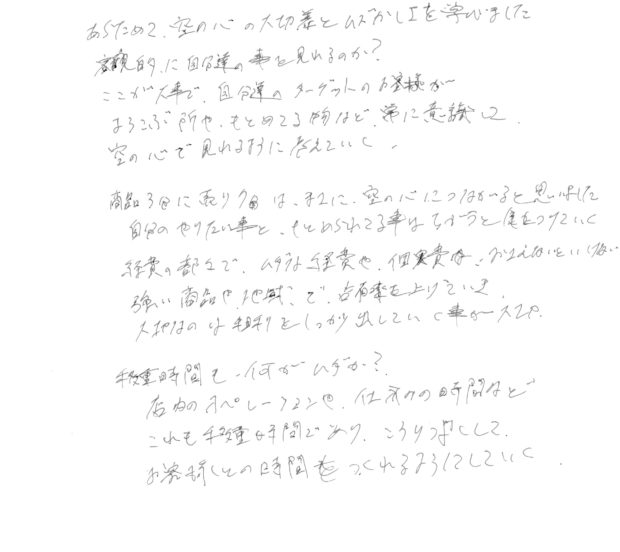 あらためて、空の心の大切差とムズかしエを学びました
客観的に自分達の事を見れるのか?
ここが大事で、自分達のターゲットのお客様が
よろこぶ所や、もとめてる物など、常に意識して
空の心で見れるように考えていく、
商品3分に売り7分は、まさに、空の心につながると思いました
自分のやりたい事と、もとめられてる事はちがうと気をつけていく
経費の部分で、ムダな経費や、個実費は、おさえないといけない
強い商品や、地域、で、占有率を上げていき
大切なのは粗利をしっかり出していく事が大切。
移動時間も、何がムダか?
店内のオペレーションや、仕入れの時間など
これも移動時間であり、こうりつよくして、
お客様との時間をつくれるようにしていく